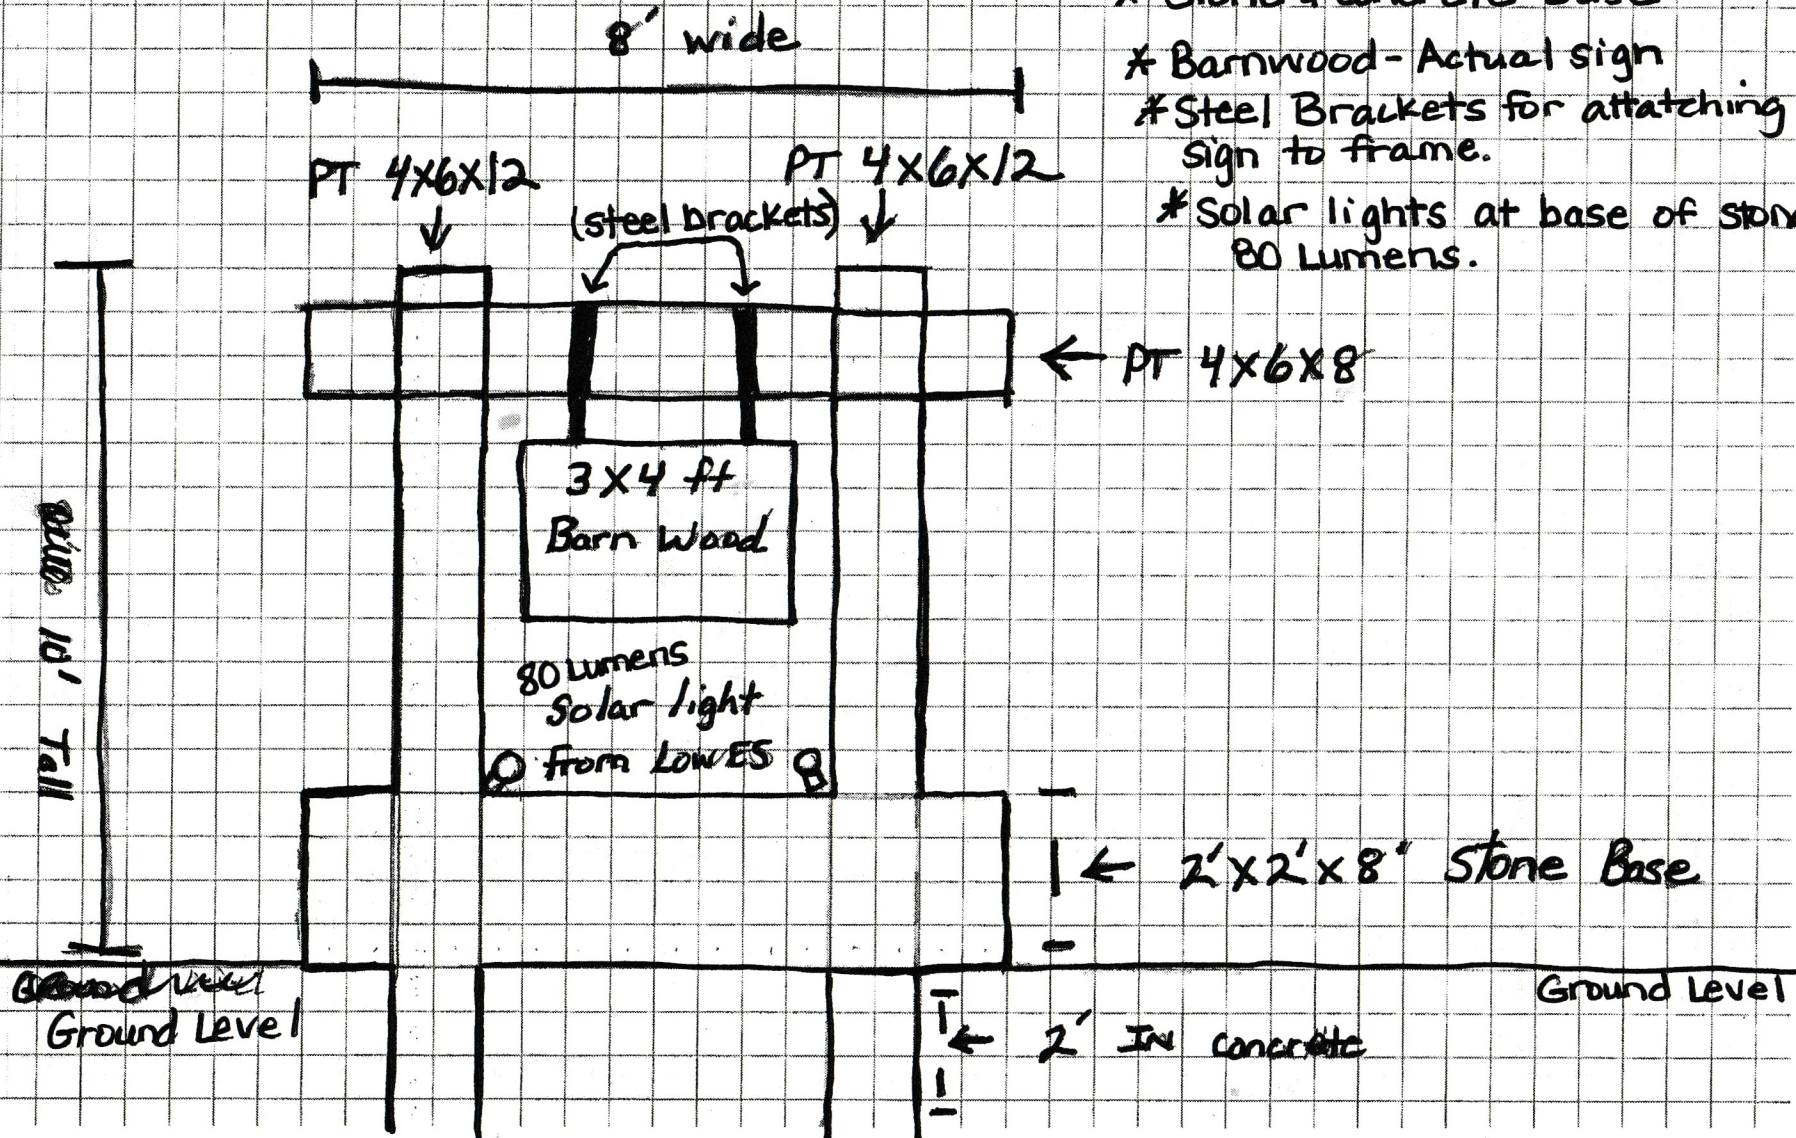 8' wide
* Barnwood - Actual sign
* Steel Brackets for attatching
sign to frame.
* Solar lights at base of
80 Lumens.
PT 4x6x12
PT 4x6x12
(steel brackets)
PT 4x6x8
3 x 4 ft
Barn Wood
80 Lumens
Solar light
from LowES
10' Tall
2'x2'x8' Stone Base
Ground Level
Ground Level
2' IN concrete